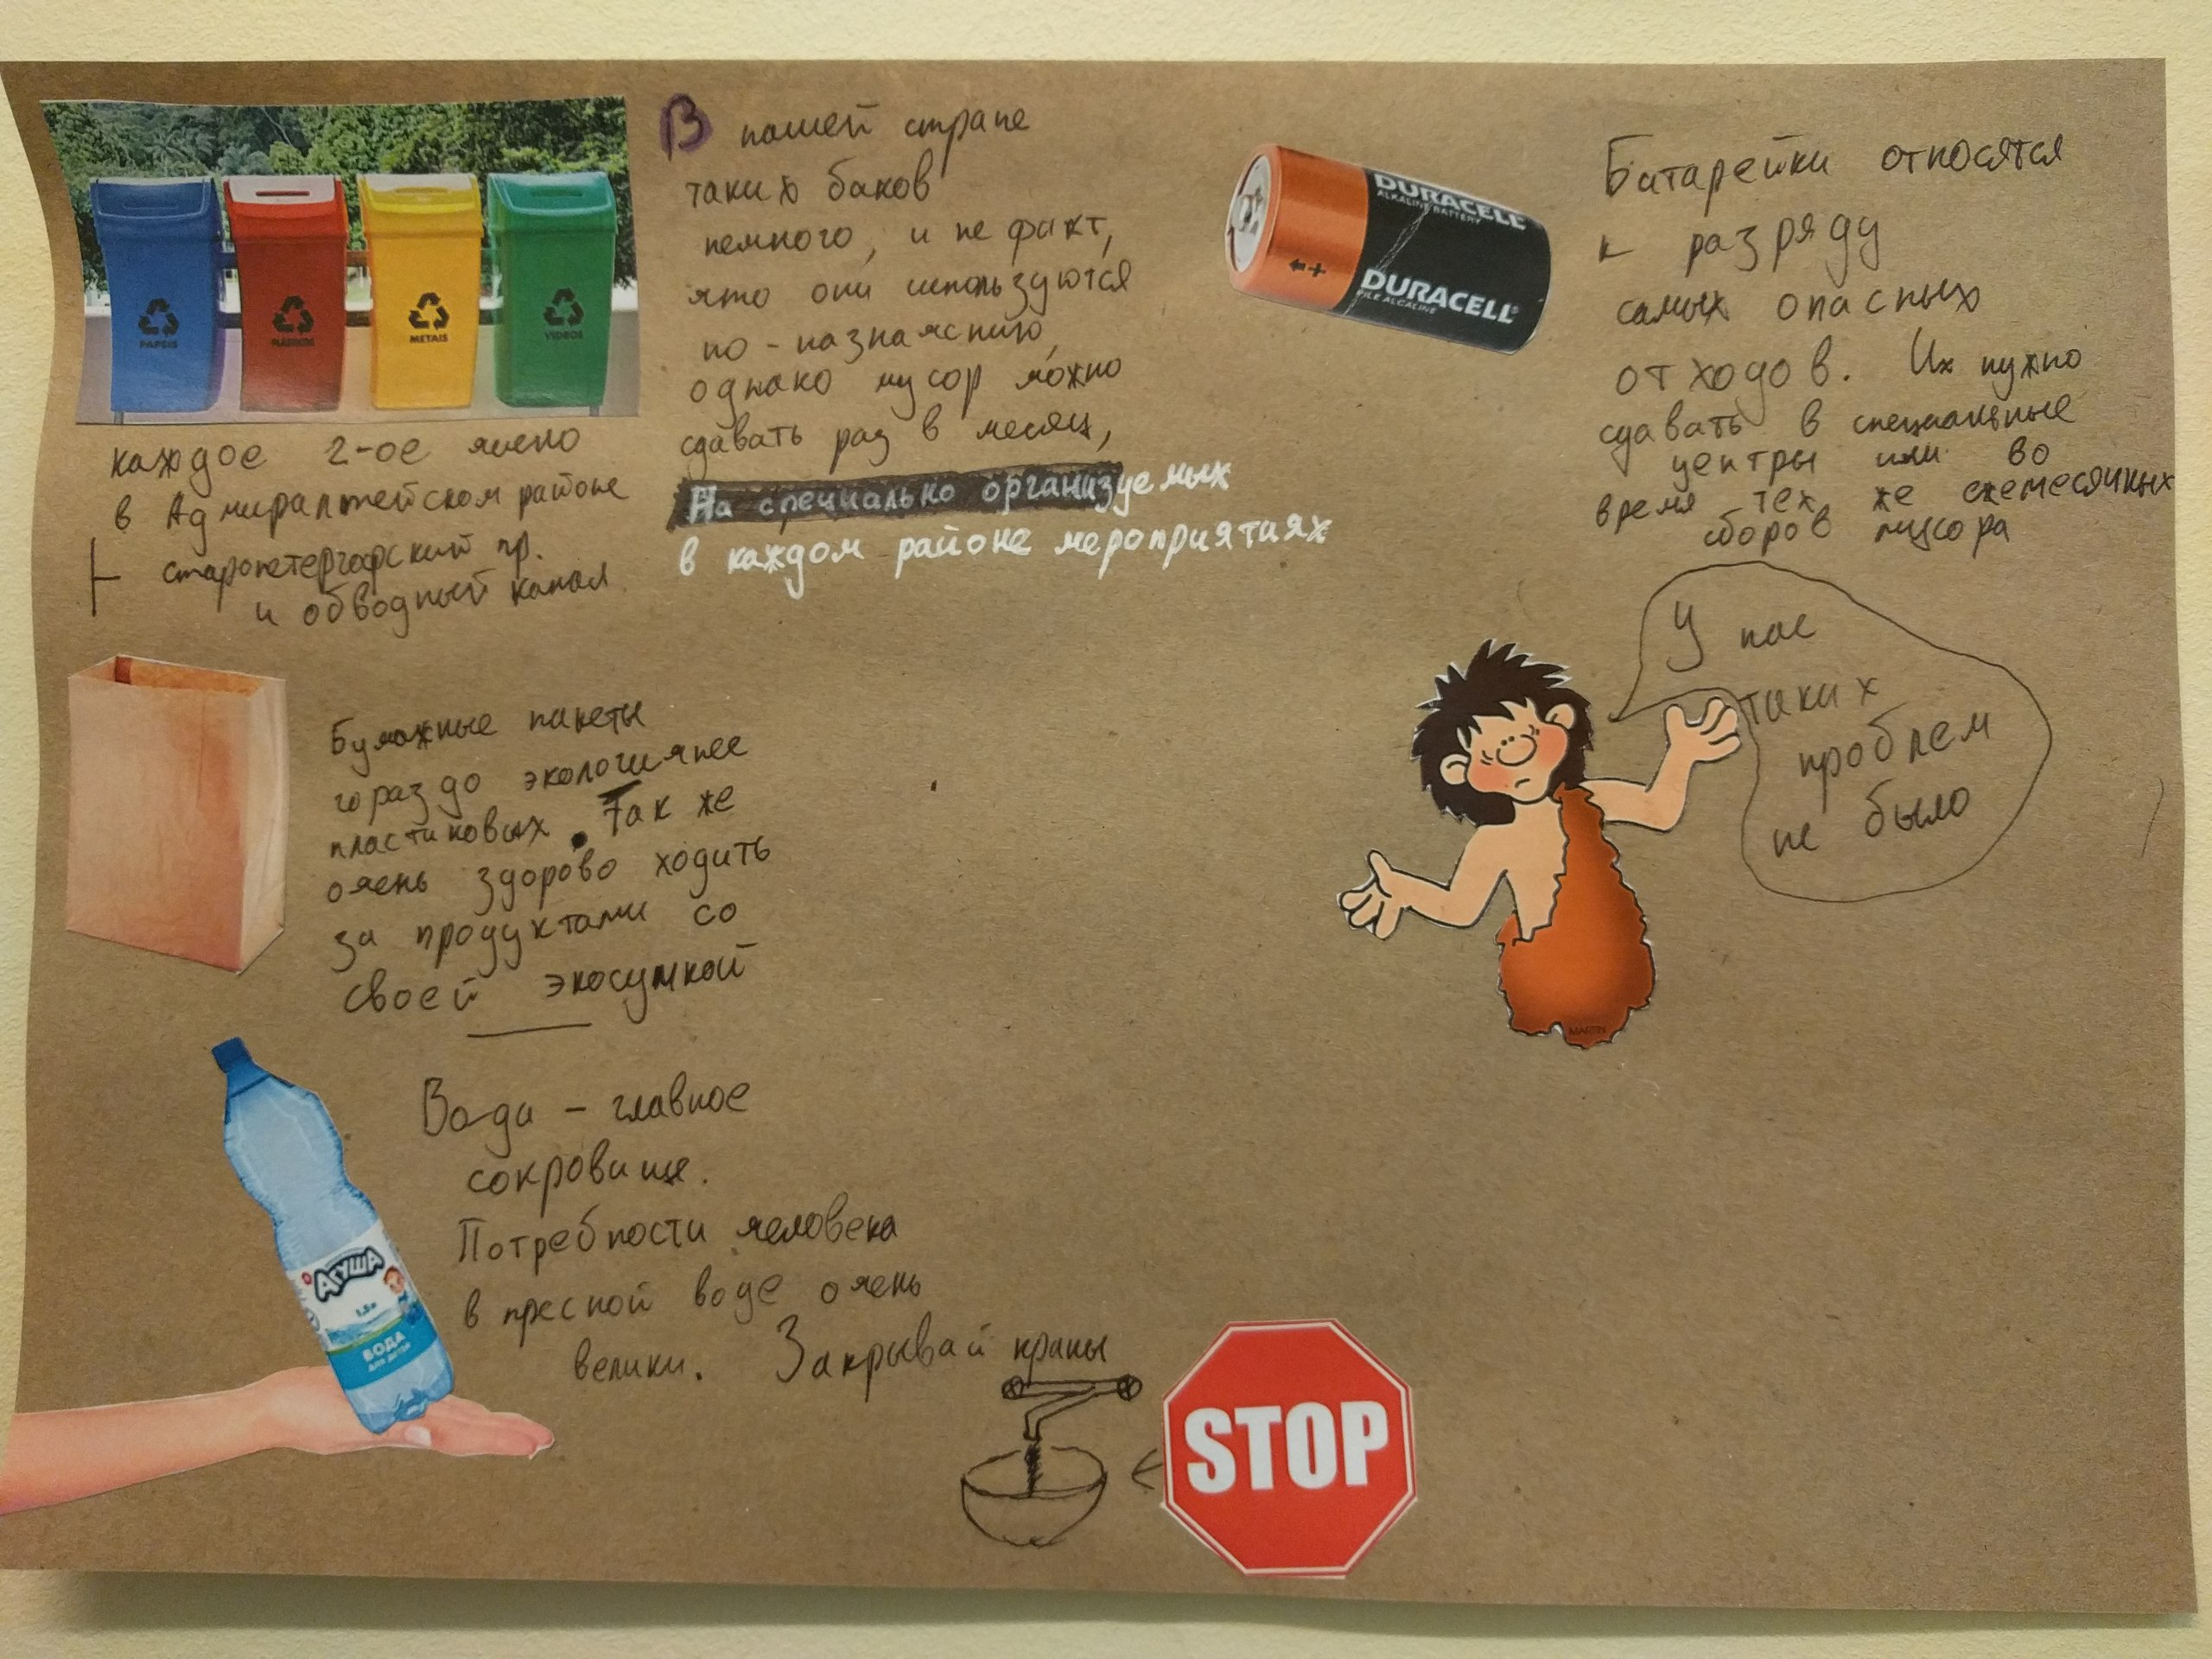 PAPEIS
PLÁSTICOS
METAIS
VIDROS
каждое 2-ое число
в Адмиралтейском районе
старопетергофский пр.
и обводный канал
В нашей стране
таких баков
немного, и не факт,
что они используются
по-назначению,
однако мусор можно
сдавать раз в месяц,
На специалько организуемых
в каждом районе мероприятиях
DURACELL
ALKALINE BATTERY
DURACELL
PILE ALCALINE
Батарейки относятся
к разряду
самых опасных
отходов. Их нужно
сдавать в специальные
центры или во
время тех же ежемесячных
сборов мусора
У нас
таких
проблем
не было
MARTIN
Бумажные пакеты
гораздо экологичнее
пластиковых. Так же
очень здорово ходить
за продуктами со
своей экосумкой
Вода - главное
сокровище.
Потребности человека
в пресной воде очень
велики. Закрывай краны
АГУША
1,5л
ВОДА
ДЛЯ ДЕТЕЙ
STOP